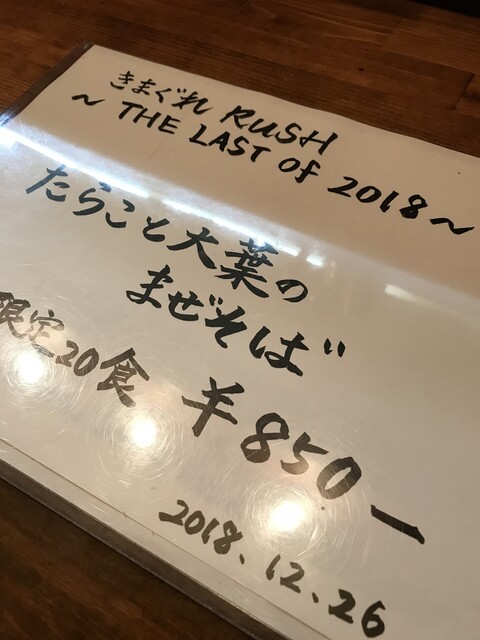 きまぐれ RUSH
～ THE LAST Of 2018～
たらこと大葉の
まぜそば
限定20食 ¥850ー
2018.12.26